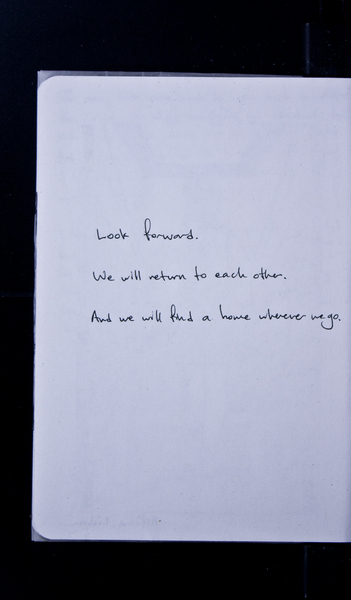 Look forward.
We will return to each other.
And we will find a home wherever we go.